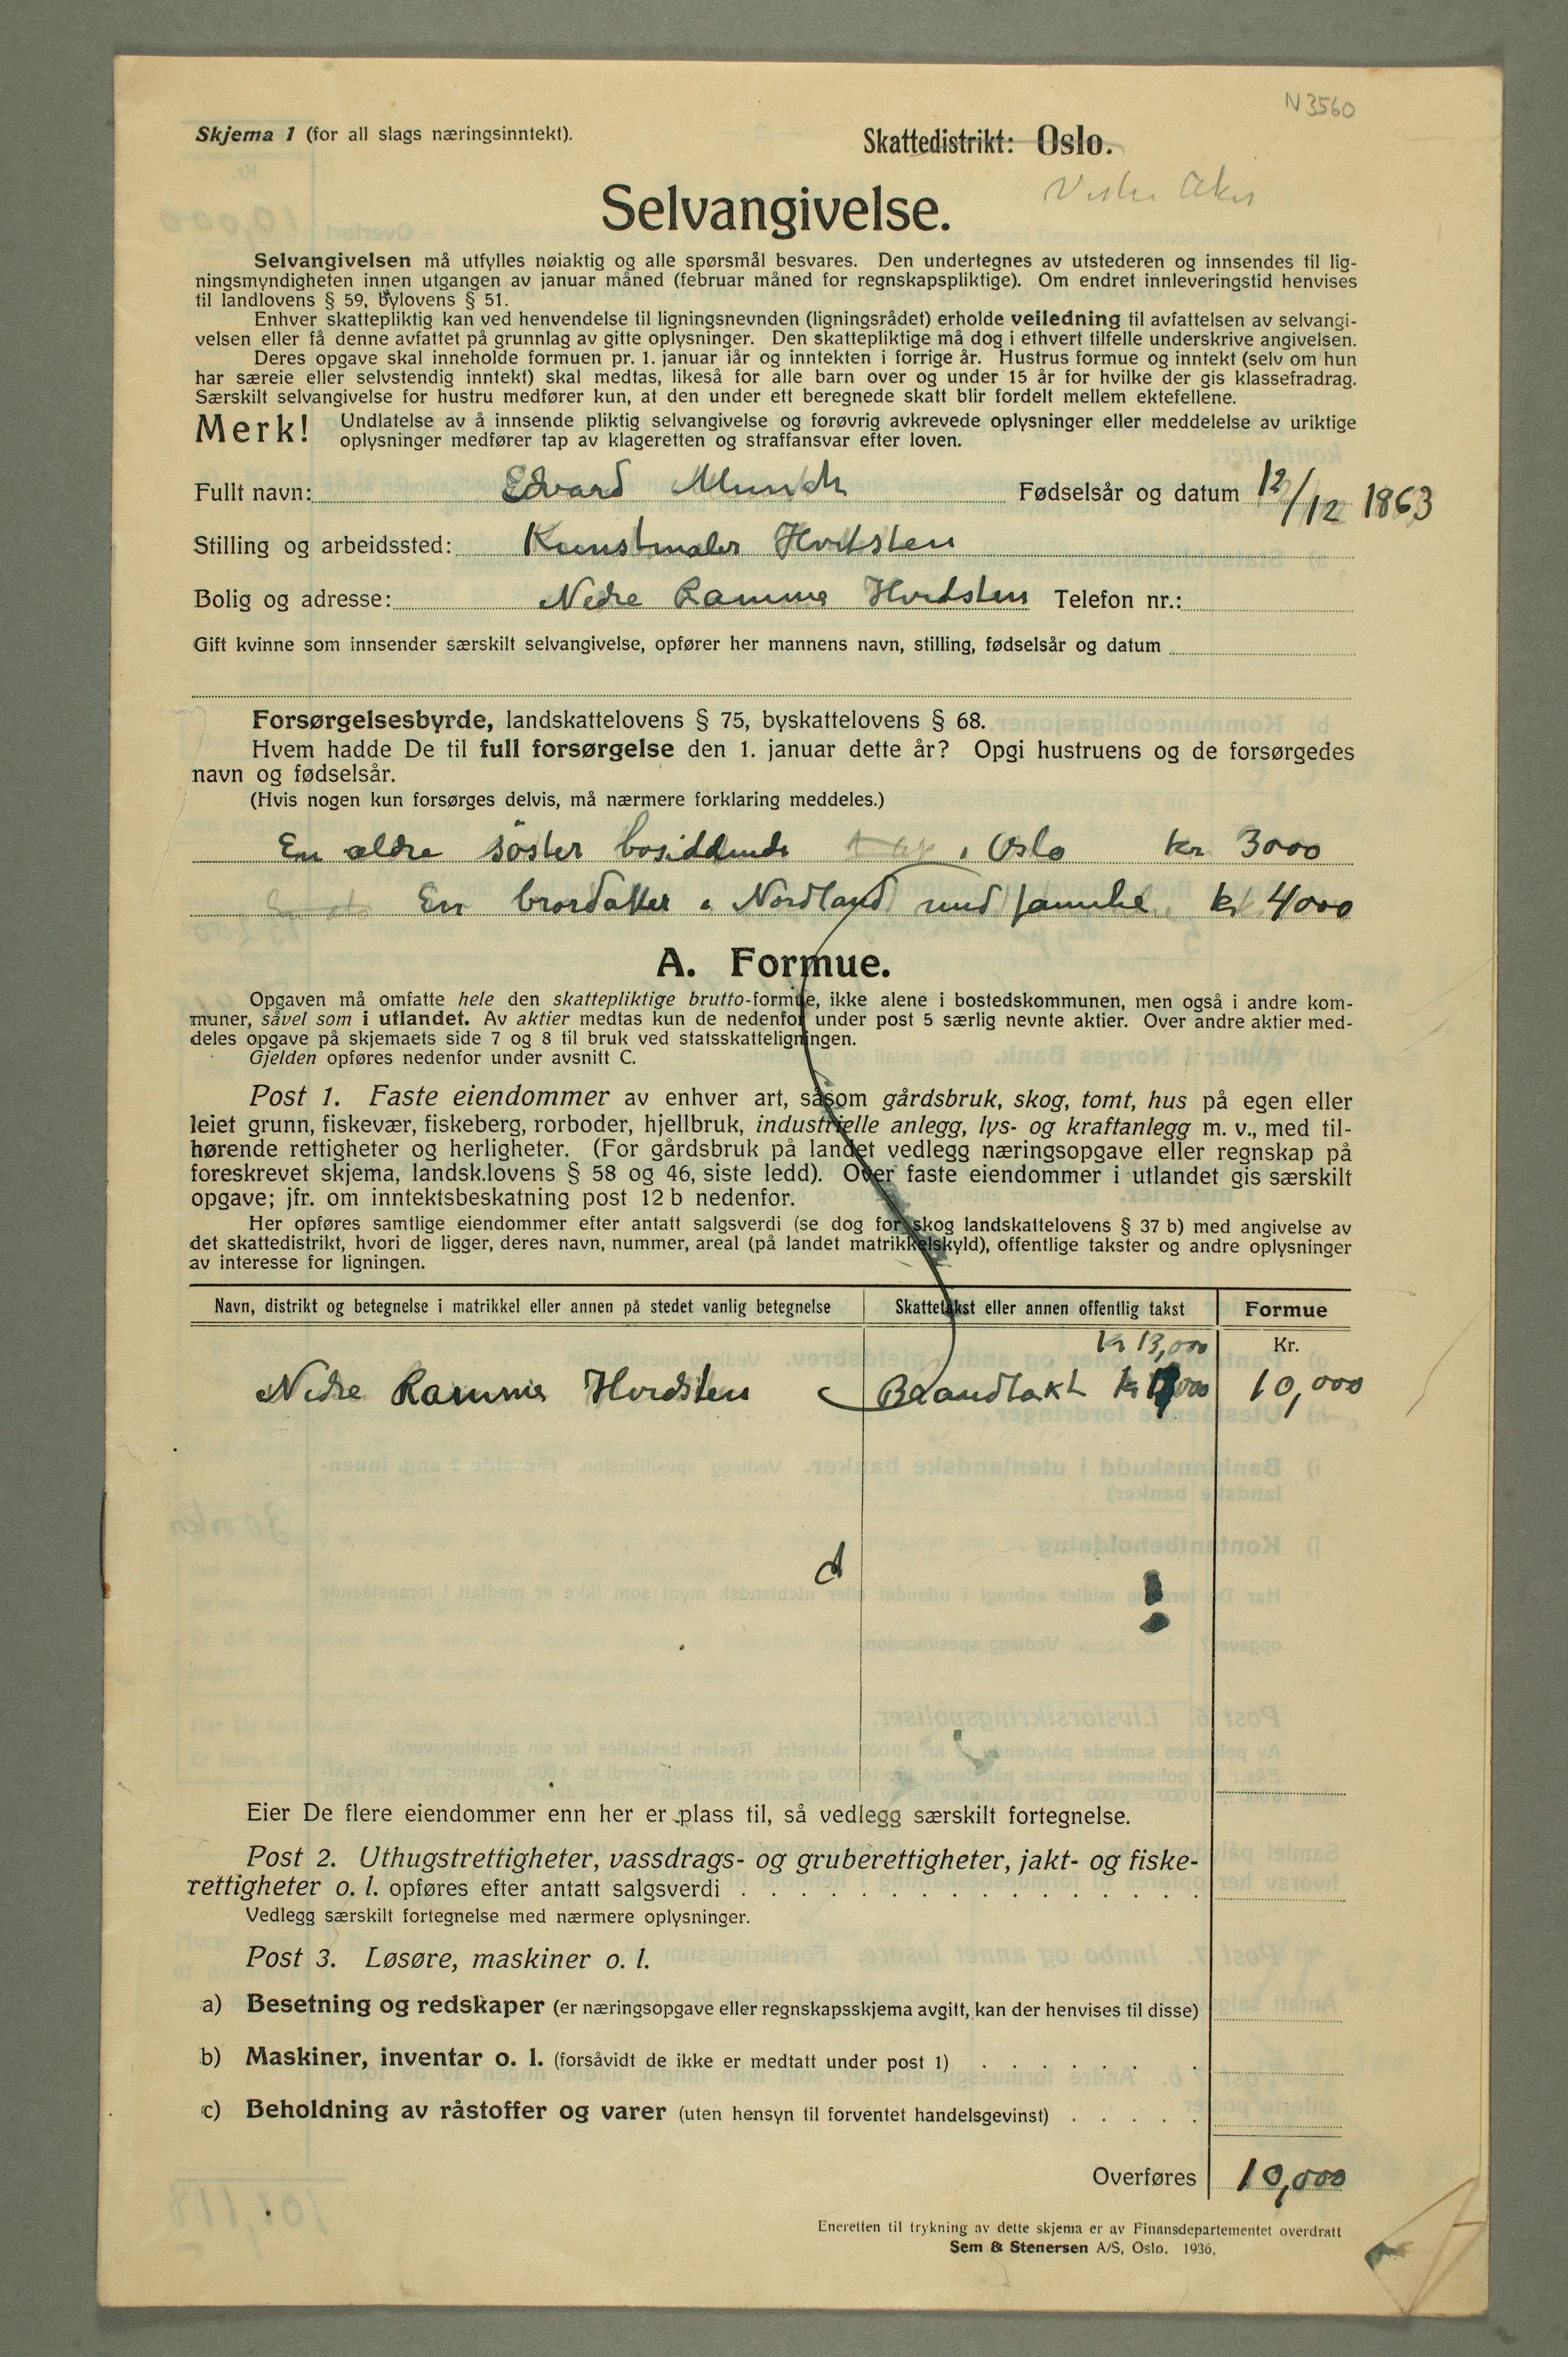 N 3560
Skjema 1 (for all slags næringsinntekt).
Skattedistrikt: Oslo.
Vestre Aker
Selvangivelse.
Selvangivelsen må utfylles nøiaktig og alle spørsmål besvares. Den undertegnes av utstederen og innsendes til lig-
ningsmyndigheten innen utgangen av januar måned (februar måned for regnskapspliktige). Om endret innleveringstid henvises
til landlovens § 59, bylovens § 51.
Enhver skattepliktig kan ved henvendelse til ligningsnevnden (ligningsrådet) erholde veiledning til avfattelsen av selvangi-
velsen eller få denne avfattet på grunnlag av gitte oplysninger. Den skattepliktige må dog i ethvert tilfelle underskrive angivelsen.
Deres opgave skal inneholde formuen pr. 1. januar iår og inntekten i forrige år. Hustrus formue og inntekt (selv om hun
har særeie eller selvstendig inntekt) skal medtas, likeså for alle barn over og under 15 år for hvilke der gis klassefradrag.
Særskilt selvangivelse for hustru medfører kun, at den under ett beregnede skatt blir fordelt mellem ektefellene.
Merk! Undlatelse av å innsende pliktig selvangivelse og forøvrig avkrevede oplysninger eller meddelelse av uriktige
oplysninger medfører tap av klageretten og straffansvar efter loven.
Fullt navn: Edvard Munch Fødselsår og datum 12/12 1863
Stilling og arbeidssted: Kunstmaler Hvitsten
Bolig og adresse: Nedre Ramme Hvidsten Telefon nr.:
Gift kvinne som innsender særskilt selvangivelse, opfører her mannens navn, stilling, fødselsår og datum
Forsørgelsesbyrde, landskattelovens § 75, byskattelovens § 68.
Hvem hadde De til full forsørgelse den 1. januar dette år? Opgi hustruens og de forsørgedes
navn og fødselsår.
(Hvis nogen kun forsørges delvis, må nærmere forklaring meddeles.)
En ældre söster bosiddende i Oslo kr 3000
En brordatter i Nordland med familie kr 4000
A. Formue.
Opgaven må omfatte hele den skattepliktige brutto-formue, ikke alene i bostedskommunen, men også i andre kom-
muner, såvel som i utlandet. Av aktier medtas kun de nedenfor under post 5 særlig nevnte aktier. Over andre aktier med-
deles opgave på skjemaets side 7 og 8 til bruk ved statsskatteligningen.
Gjelden opføres nedenfor under avsnitt C.
Post 1. Faste eiendommer av enhver art, såsom gårdsbruk, skog, tomt, hus på egen eller
leiet grunn, fiskevær, fiskeberg, rorboder, hjellbruk, industrielle anlegg, lys- og kraftanlegg m. v., med til-
hørende rettigheter og herligheter. (For gårdsbruk på landet vedlegg næringsopgave eller regnskap på
foreskrevet skjema, landsk.lovens § 58 og 46, siste ledd). Over faste eiendommer i utlandet gis særskilt
opgave; jfr. om inntektsbeskatning post 12 b nedenfor.
Her opføres samtlige eiendommer efter antatt salgsverdi (se dog for skog landskattelovens § 37 b) med angivelse av
det skattedistrikt, hvori de ligger, deres navn, nummer, areal (på landet matrikkelskyld), offentlige takster og andre oplysninger
av interesse for ligningen.
Navn, distrikt og betegnelse i matrikkel eller annen på stedet vanlig betegnelse Skattetakst eller annen offentlig takst Formue
kr 13,000 Kr.
Nedre Ramme Hvidsten Brandtakt kr 10,000
Eier De flere eiendommer enn her er plass til, så vedlegg særskilt fortegnelse.
Post 2. Uthugstrettigheter, vassdrags- og gruberettigheter, jakt- og fiske-
rettigheter o. l. opføres efter antatt salgsverdi . . . . . . . . . . . . . . . .
Vedlegg særskilt fortegnelse med nærmere oplysninger.
Post 3. Løsøre, maskiner o. l.
a) Besetning og redskaper (er næringsopgave eller regnskapsskjema avgitt, kan der henvises til disse)
b) Maskiner, inventar o. l. (forsåvidt de ikke er medtatt under post 1) . . . . . .
c) Beholdning av råstoffer og varer (uten hensyn til forventet handelsgevinst) . . . . .
Overføres 10,000
Eneretten til trykning av dette skjema er av Finansdepartementet overdratt
Sem & Stenersen A/S, Oslo. 1936.